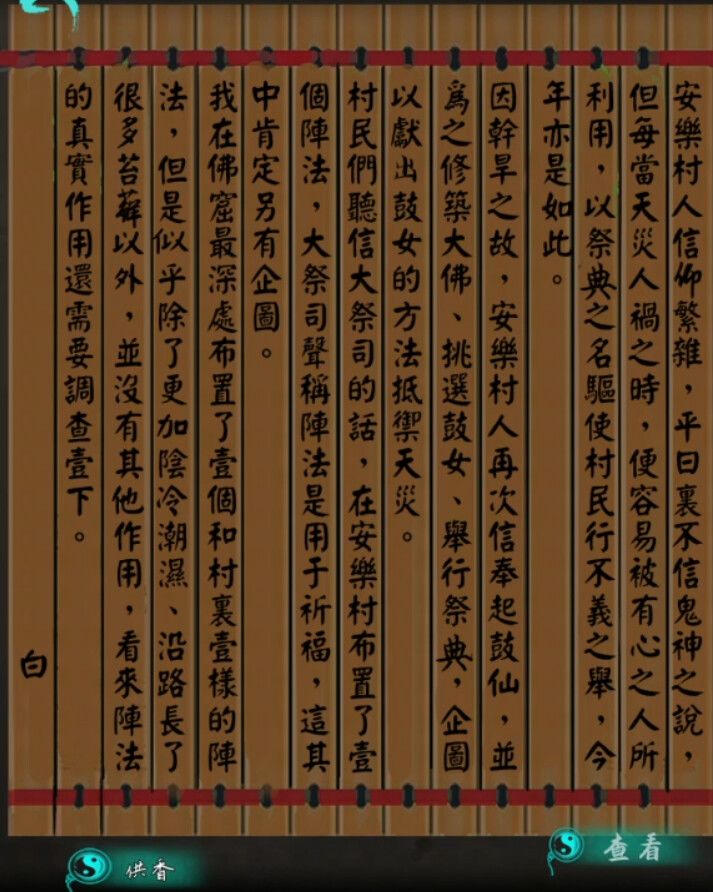 安樂村人信仰繁雜，平日裏不信鬼神之說，
但每當天災人禍之時，便容易被有心之人所
利用，以祭典之名驅使村民行不義之舉，今
年亦是如此。
因幹旱之故，安樂村人再次信奉起鼓仙，並
爲之修築大佛、挑選鼓女、舉行祭典，企圖
以獻出鼓女的方法抵禦天災。
村民們聽信大祭司的話，在安樂村布置了壹
個陣法，大祭司聲稱陣法是用于祈福，這其
中肯定另有企圖。
我在佛窟最深處布置了壹個和村裏壹樣的陣
法，但是似乎除了更加陰冷潮濕、沿路長了
很多苔蘚以外，並沒有其他作用，看來陣法
的真實作用還需要調查壹下。
白
供香
查看